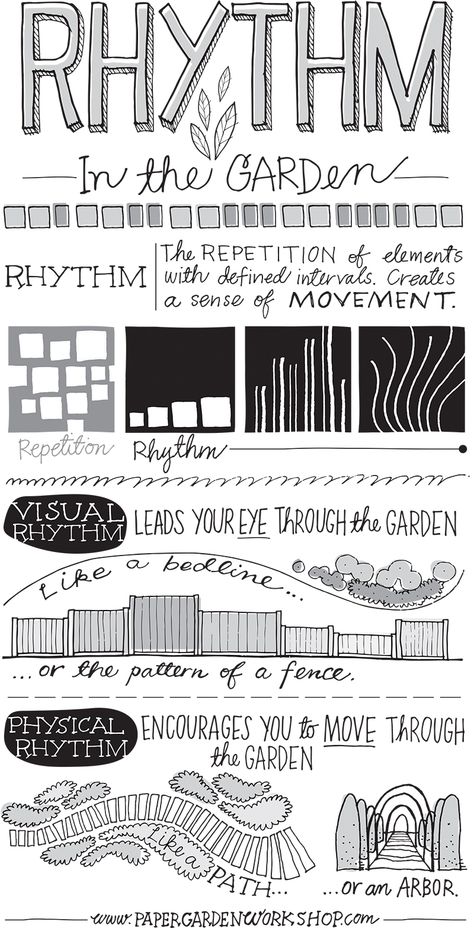 RHYTHM
In the GARDen
RHYTHM
The REPETITION of elements
with defined intervals. Creates
a sense of MOVEMENT.
Repetition Rhythm
VISUAL
RHYTHM
LEADS YOUR EYE THROUGH the GARDEN
Like a bedline...
...or the pattern of a fence.
PHYSICAL
RHYTHM
ENCOURAGES YOU to MOVE THROUGH
the GARDEN
Like a
PATH...
...or an ARBOR.
www.PAPERGARDENWORKSHOP.com